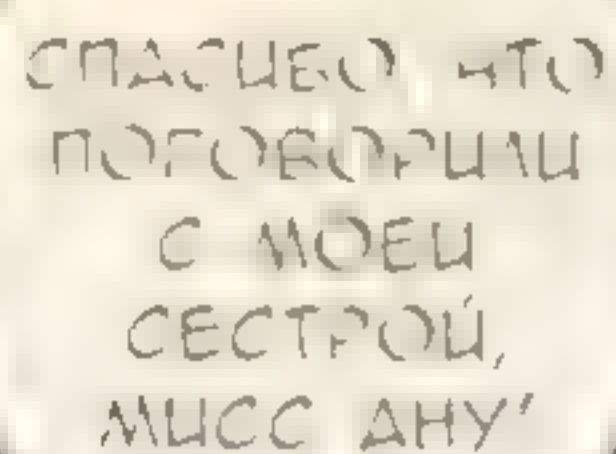 СПАСИБО, ЧТО
ПОГОВОРИЛИ
С МОЕЙ
СЕСТРОЙ,
МИСС АНУ'